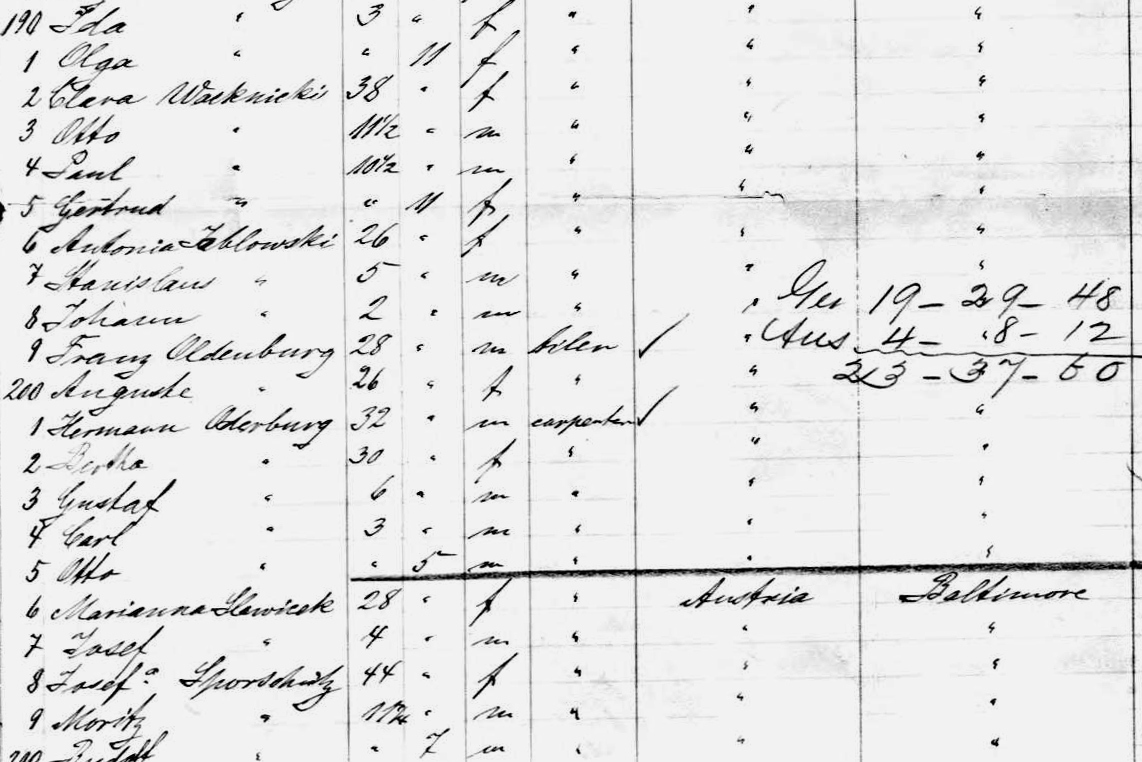 190 Ida " 3 " f " " "
1 Olga " " 11 f " " "
2 Clara Wocknicki 38 " f " " "
3 Otto " 11 1/2 " m " " "
4 Paul " 10 1/2 " m " " "
5 Gertrud " " 11 f " " "
6 Antonia Jablowski 26 " f " " "
7 Stanislaus " 5 " m " " "
8 Johann " 2 " m " " Ger 19 - 29 - 48
9 Franz Oldenburg 28 " m ✓ " Aus 4 - 8 - 12
200 Auguste " 26 " f " " 23 - 37 - 60
1 Hermann Oderburg 32 " m carpenter ✓ " "
2 Bertha " 30 " f " " "
3 Gustaf " 6 " m " " "
4 Carl " 3 " m " " "
5 Otto " " 5 m " " "
6 Marianna Slawicek 28 " f " Austria Baltimore
7 Josef " 4 " m " " "
8 Josefa Sporschütz 44 " f " " "
9 Moritz " " m " " "
Rudolf " " 7 m " " "